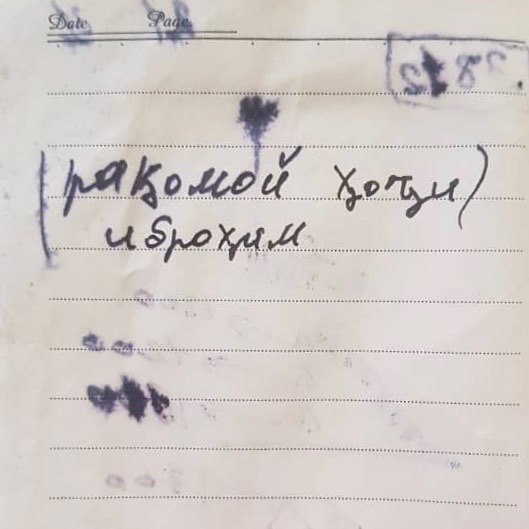 Date Page
(рақомой ҳоҷи)
иброҳим